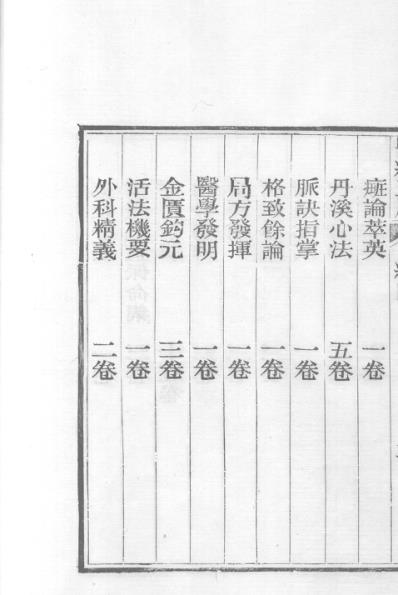 癍論萃英 一卷
丹溪心法 五卷
脈訣指掌 一卷
格致餘論 一卷
局方發揮 一卷
醫學發明 一卷
金匱鈎元 三卷
活法機要 一卷
外科精義 二卷